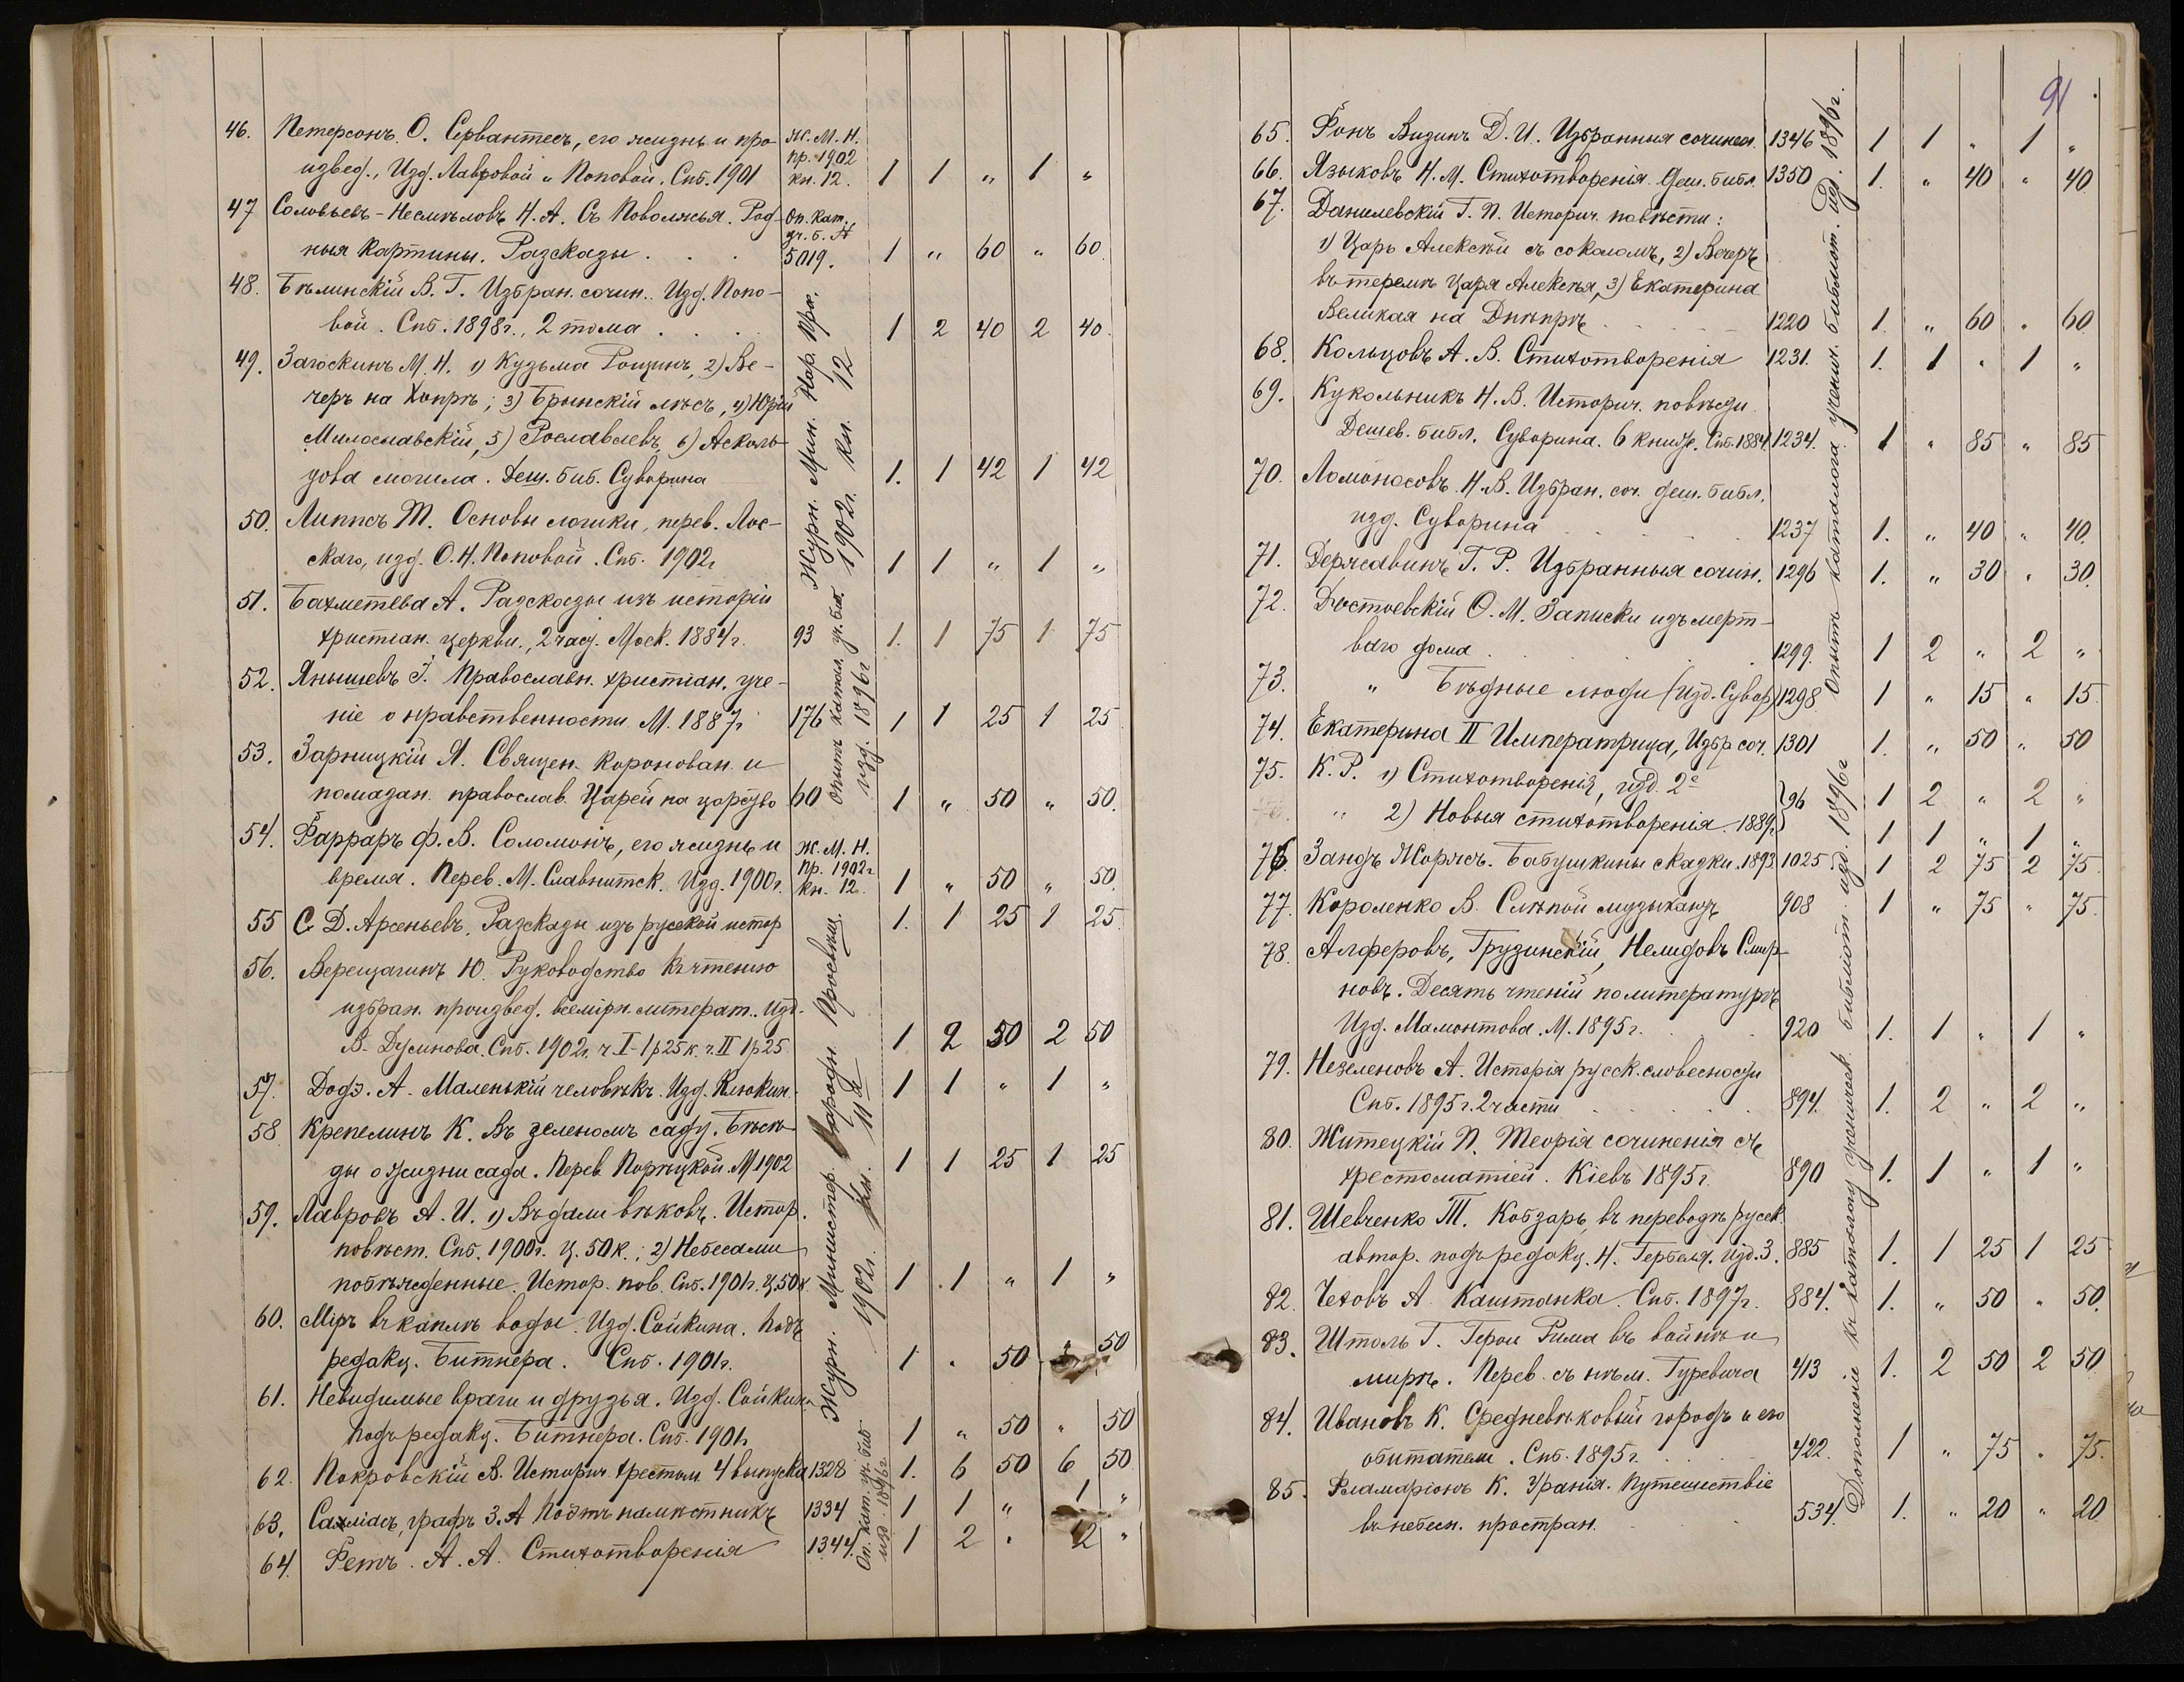 46. Петерсонъ О. Сервантесъ, его жизнь и про- Ж. М. Н.
извед., Изд. Лавровой и Поповой. Спб. 1901 пр. 1902 кн. 12. 1 1 „ 1 „
47 Соловьевъ-Несмѣловъ Н. А. Съ Поволжья. Род- Оп. Кат.
ныя картины. Разсказы . . . уч. б. № 5019. 1 „ 60 „ 60.
48. Бѣлинскій В. Г. Избран. сочин. Изд. Попо-
вой. Спб. 1898г., 2 тома . . . 1 2 40 2 40.
49. Загоскинъ М. Н. 1) Кузьма Рощинъ, 2) Ве-
черъ на Хопрѣ; 3) Брынскій лѣсъ, 4) Юрій
Милославскій, 5) Рославлевъ, 6) Асколь-
дова могила. Деш. биб. Суворина 1. 1 42 1 42
50. Липпсъ Т. Основы логики, перев. Лос-
скаго, изд. О. Н. Поповой. Спб. 1902г 1 1 „ 1 „
Журн. Мин. Нар. Пр.
1902г. кн. 12
51. Бахметева А. Разсказы изъ исторіи
христіан. церкви., 2 час. Моск. 1884г. 93 1. 1 75 1 75
52. Янышевъ І. Православн. христіан. уче-
ніе о нравственности М. 1887г 176 1 1 25 1 25
53. Зарницкій Я. Священ. коронован. и
помазан. православ. Царей на царство 60 1 „ 50 „ 50.
Опытъ катал. уч. биб.
изд. 1896г
54. Фарраръ Ф. В. Соломонъ, его жизнь и Ж. М. Н.
время. Перев. М. Славнитск. Изд. 1900г. Пр. 1902г кн. 12. 1 „ 50 „ 50.
55 С. Д. Арсеньевъ. Разсказы изъ русской истор 1. 1 25 1 25.
56. Верещагинъ Ю. Руководство къ чтенію
избран. произвед. всемірн. литерат. Изд.
В. Думнова. Спб. 1902г. ч. I-1р25к. ч. II 1р25 1 2 50 2 50
57. Додэ. А. Маленькій человѣкъ. Изд. Клюкин. 1 1 „ 1 „
58 Крепелинъ К. Въ зеленомъ саду. Бесѣ-
ды о жизни сада. Перев. Порѣцкой. М 1902 1 1 25 1 25
59. Лавровъ А. И. 1) Въ дали вѣковъ. Истор.
повѣст. Спб. 1900г. ц. 50к.; 2) Небесами
побѣжденные. Истор. пов. Спб. 1901г. ц. 50к 1 1 „ 1 „
60. Міръ въ каплѣ воды. Изд. Сойкина. подъ
редакц. Битнера. Спб. 1901г. 1 . 50 50
61. Невидимые враги и друзья. Изд. Сойкина
подъ редакц. Битнера. Спб. 1901г 1 „ 50 „ 50
Журн. Министер. Народн. Просвѣщ.
1902г. кн. 11я
62. Покровскій В. Историч. хрестом. 4 выпуска 1328 1. 6 50 6 50
63. Саліасъ, графъ Э. А Поэтъ намѣстникъ 1334 1 1 „ 1 „
64. Фетъ. А. А. Стихотворенія 1344. 1 2 „ 2 „
Оп. кат. уч. биб
изд. 1896г
91
65. Фонъ Визинъ Д. И. Избранныя сочинен. 1346 1 1 „ 1 „
66. Языковъ Н. М. Стихотворенія. Деш. библ. 1350 1. „ 40 „ 40
67. Данилевскій Г. П. Историч. повѣсти:
1) Царь Алексѣй съ соколомъ, 2) Вечеръ
въ теремѣ Царя Алексѣя, 3) Екатерина
Великая на Днѣпрѣ . . . 1220 1. „ 60 „ 60
68. Кольцовъ А. В. Стихотворенія 1231. 1. 1 „ 1 „
69. Кукольникъ Н. В. Историч. повѣсти
Дешев. библ. Суворина. 6 книж. Спб. 1884. 1234. 1 „ 85 „ 85
70. Ломоносовъ. М. В. Избран. соч. деш. библ.
изд. Суворина . . . 1237 1. „ 40 „ 40.
71. Державинъ Г. Р. Избранныя сочин. 1296 1. „ 30 „ 30.
72. Достоевскій Ѳ. М. Записки изъ мерт-
ваго дома . . . 1299. 1 2 „ 2 „
73. „ Бѣдные люди (изд. Сувор) 1298 1 „ 15 „ 15.
Опытъ каталога ученич. библіот. изд. 1896г.
74. Екатерина II Императрица, Избр соч. 1301 1. „ 50 „ 50
75. К. Р. 1) Стихотворенія, изд. 2е } 96 1 2 „ 2 „
„ 2) Новыя стихотворенія. 1889г. 1 1 „ 1 „
76. Зандъ Жоржъ. Бабушкины сказки. 1893. 1025 1 2 75 2 75.
77. Короленко В. Слѣпой музыкантъ 908 1 „ 75 „ 75.
78. Алферовъ, Грузинскій, Нелидовъ Смир-
новъ. Десять чтеній по литературѣ
Изд. Мамонтова. М. 1895г. . . 920 1. 1 „ 1 „
79. Незеленовъ А. Исторія русск. словесности
Спб. 1895г. 2 части . . . 894. 1. 2 „ 2 „
80. Житецкій П. Теорія сочиненія съ
хрестоматіей. Кіевъ 1895г. 890 1. 1 „ 1 „
81. Шевченко Т. Кобзарь, въ переводѣ русск.
автор. подъ редакц. Н. Гербеля. Изд. 3. 885 1. 1 25 1 25
82. Чеховъ А. Каштанка. Спб. 1897г. 884. 1. „ 50 „ 50.
83. Штоль Г. Герои Рима въ войнѣ и
мирѣ. Перев. съ нѣм. Гуревича 413 1. 2 50 2 50
84. Ивановъ К. Средневѣковый городъ и его
обитатели. Спб. 1895г. . . . 422. 1 „ 75 „ 75.
85. Фламаріонъ К. Уранія. Путешествіе
въ небесн. простран. . . . 534. 1. „ 20 „ 20
Дополненіе къ каталогу ученическ. библіот. изд. 1896г